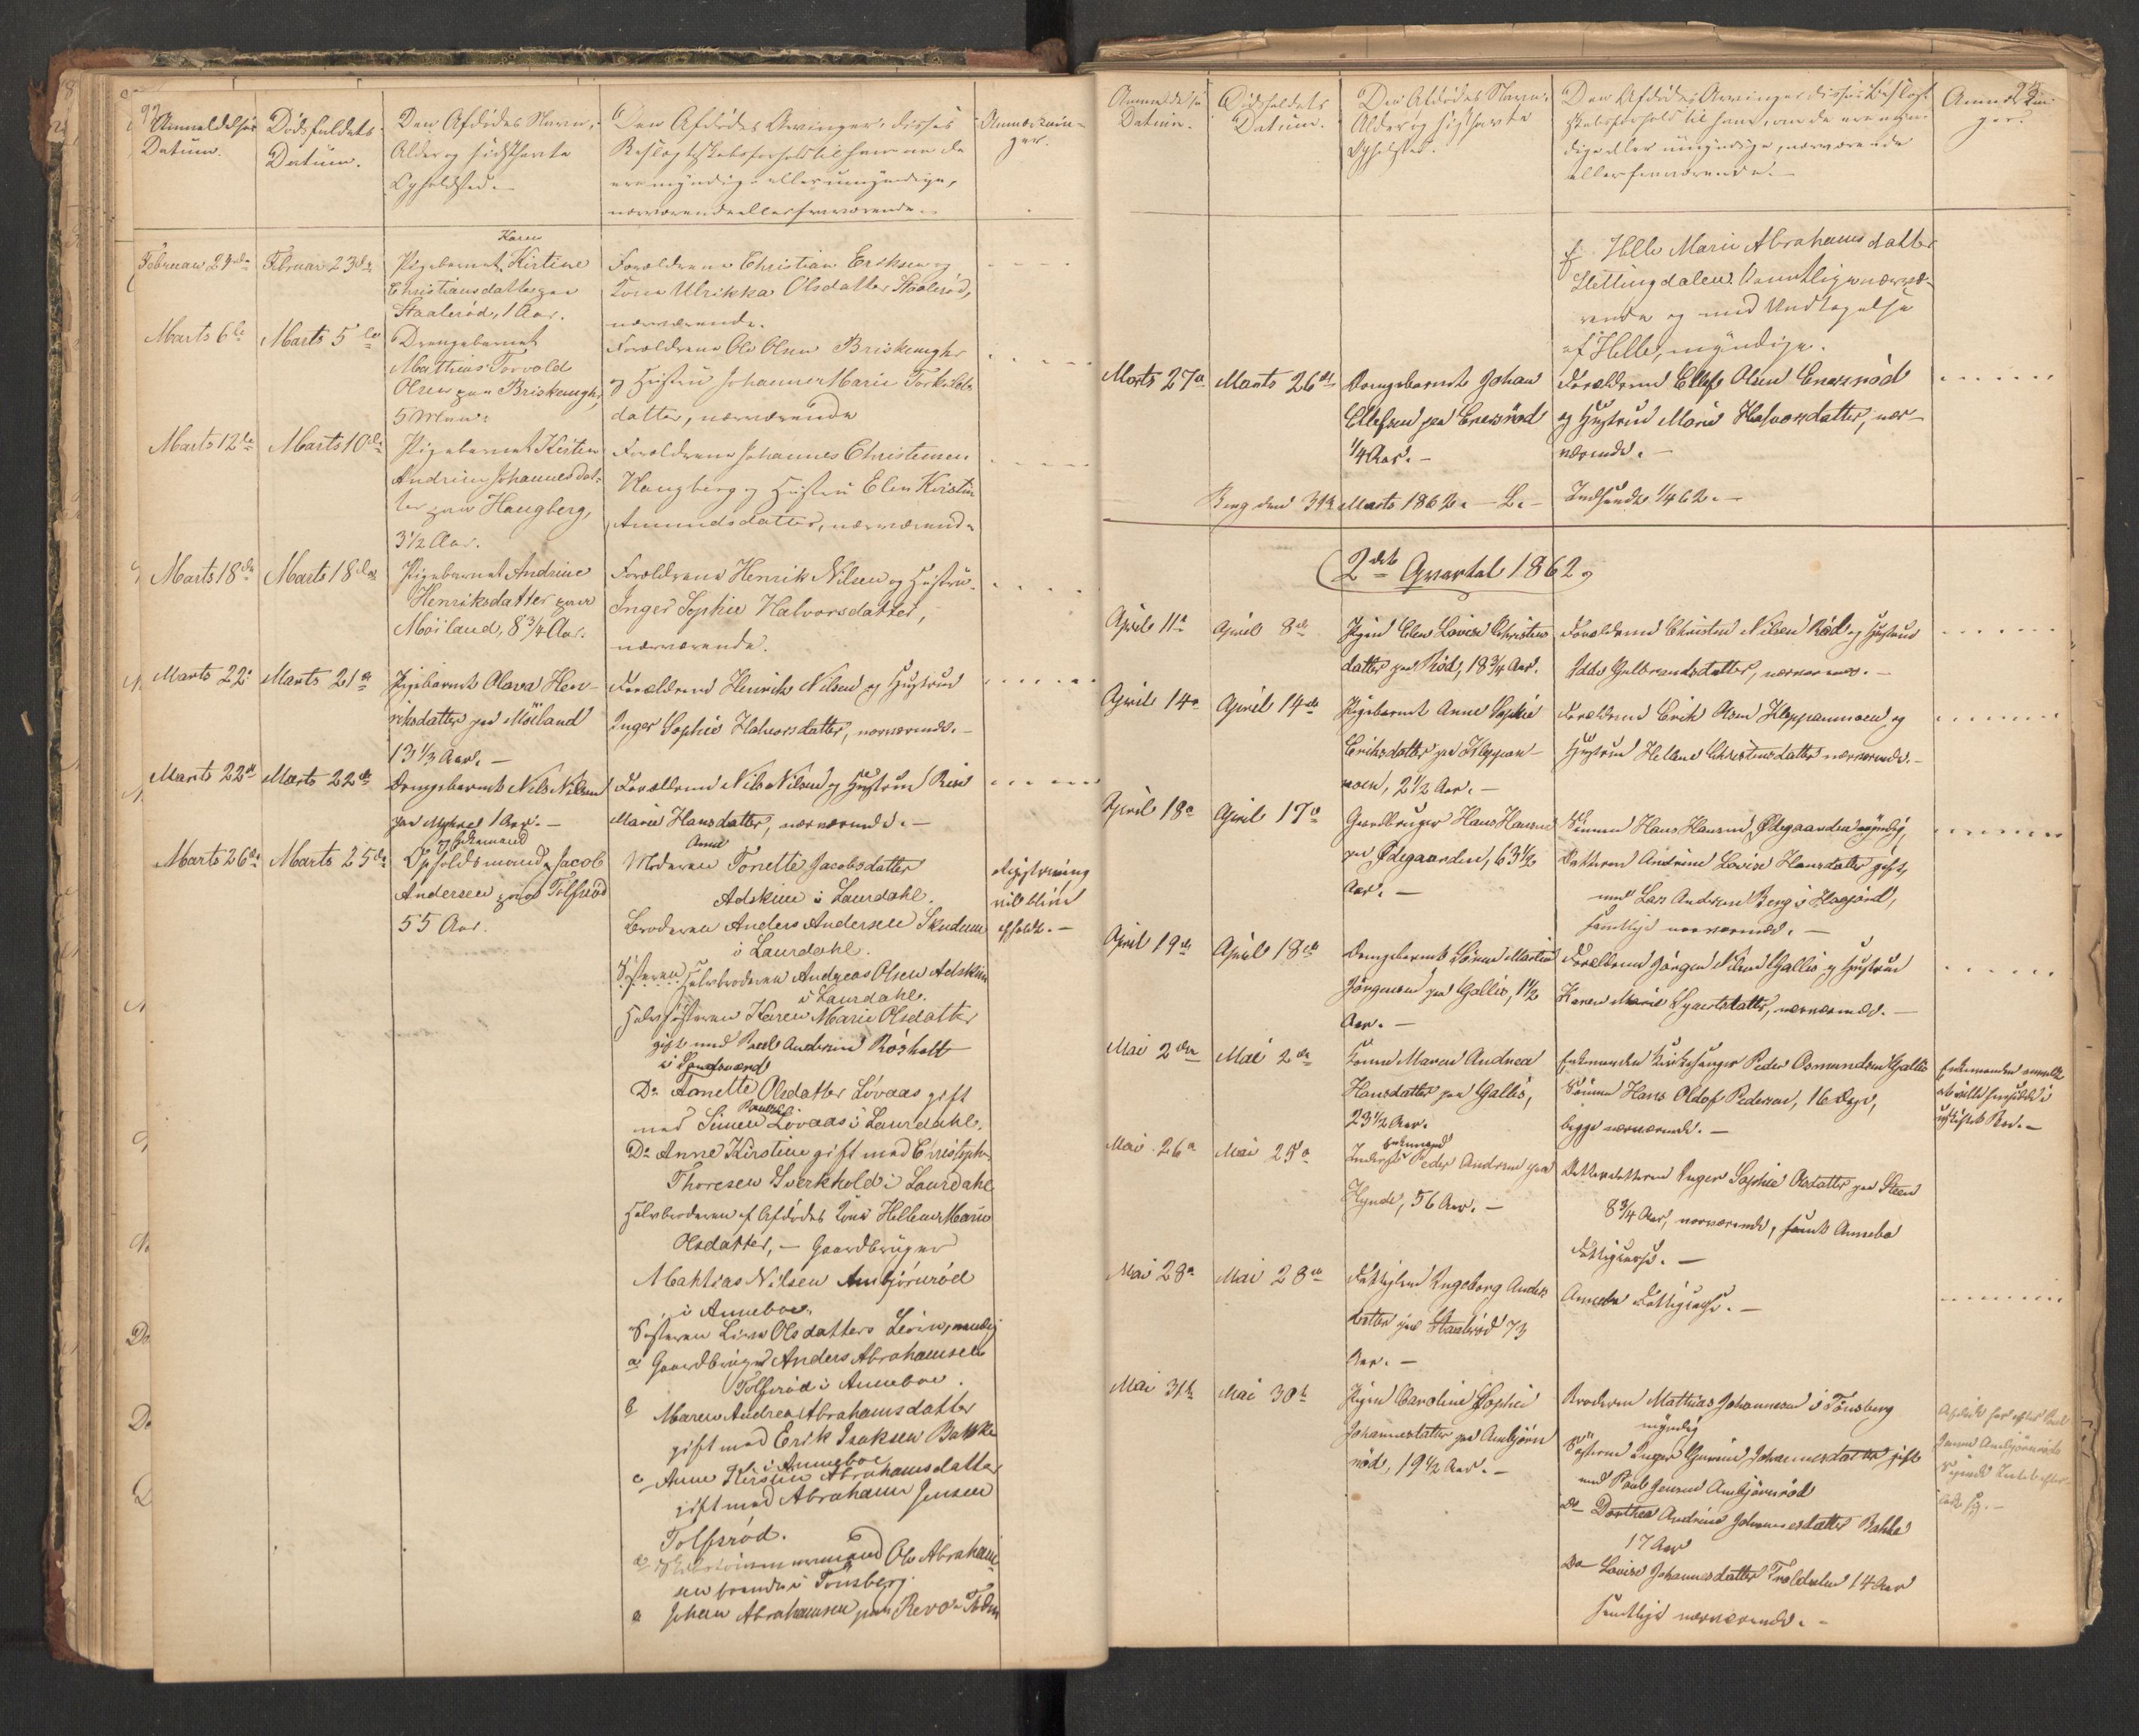 92
Anmeldelses
Datum.
Dødsfaldets
Datum.
Den Afdødes Navn,
Alder og sidsthavte
Opholdsted.
Den Afdødes Arvinger, disses
Beslægtskabsforhold til ham om de
ere myndige eller umyndige,
nærværende eller fraværende.
Anmærknin-
ger.
Februar 24de
Februar 23de
Karen
Pigebarnet Kirtine
Christiansdatter paa
Staalerød, 1 Aar.
Forældrene Christian Eriksen og
Kone Ulrikka Olsdatter Staalerød,
nærværende.
Marts 6te
Marts 5te
Drengebarnet
Matthias Torvald
Olsen paa Briskeengh,
5 Maan:
Forældrene Ole Olsen Briskeengh
og Hustru Johanne Marie Torkels-
datter, nærværende
Marts 12te
Marts 10de
Pigebarnet Kirsten
Andrine Johannesdat-
ter paa Haugberg,
3 1/2 Aar.
Forældrene Johannes Christensen
Haugberg og Hustru Elen Kirstin
Amundsdatter, nærværende
Marts 18de
Marts 18de
Pigebarnet Andrine
Henriksdatter paa
Möiland, 8 3/4 Aar.
Forældrene Henrik Nilsen og Hustru
Inger Sophie Halvorsdatter,
nærværende.
Marts 22
Marts 21de
Pigebarnet Olava Hen-
riksdatter paa Möiland
13 1/3 Aar. -
Forældrene Henrik Nilsen og Hustrue
Inger Sophie Halvorsdatter, nærværende. -
Marts 22de
Marts 22de
Drengebarnet Nils Nilsen
paa 1 Aar. -
Forældrene Nils Nilsen og Hustrue
Marie Hansdatter, nærværende. -
Marts 26de
Marts 25de
Opholdsmand Jacob
Andersen paa Tolfsrød
55 Aar.
Anne
Moderen Tonette Jacobsdatter
Adskim i Laurdahl.
Broderen Anders Andersen Skudem
i Laurdahl.
Halvbroderen Andreas Olsen Adskim
i Laurdahl.
Halvsøsteren Karen Marie Olsdatter
gift med Andersen Rösholt
i
Do Anette Olsdatter Lövaas gift
med Simen Lövaas i Laurdahl.
Do Anne Kirstine gift med Christopher
Thoresen i Laurdahl
Halvbroderen af Afdødes Kone Hellene Marie
Olsdatter, - Gaardbruger
Mathias Nilsen Ambjörnrød
i Anneboe.
Søsteren Lisa Olsdatters
a Gaardbruger Anders Abrahamsen
Tolfsrød i Anneboe.
b Maren Andrea Abrahamsdatter
gift med Erik Isaksen Bakke
i Anneboe
c Anne Kirstine Abrahamsdatter
gift med Abraham Jensen
Tolfsrød.
Ole Abraham-
sen i Tønsberg.
Johan Abrahamsen paa
Registrering
vil blive
afholdt. -
Anmeldelses
Datum.
Dødsfaldets
Datum.
Den Afdødes Navn,
Alder og sidsthavte
Opholdsted.
Den Afdødes Arvinger disses Beslægt-
skabsforhold til ham, om de ere myn-
dige eller umyndige, nærværende
eller fraværende. -
Anmærknin-
ger.
f Helle Marie Abrahamsdatter
Slettingdalen. Samtlige nærvæ-
rende og med Undtagelse
af Helle, myndige.
Marts 27de
Marts 26de
Drengebarnet Johan
Ellefsen paa Enersröd
1/4 Aar. -
Forældrene Ellef Olsen Enersröd
og Hustrue Marie Halvorsdatter, nær-
værende. -
Berg den 31te Marts 1862. - L. -
Indsendt 1/4 62. -
2det Qvartal 1862
April 11te
April 8de
Pigen Elen Lovise Christens
datter paa Röd, 18 3/4 Aar.
Forældrene Christen Nilsen Röd og Hustrue
Idde Gulbrandsdatter, nærværende. -
April 14de
April 14de
Pigebarnet Anne Sophie
Eriksdatter paa Kleppan-
moen, 2 1/2 Aar. -
Forældrene Erik Olsen Kleppanmoen og
Hustrue Hellene Christensdatter nærværende. -
April 18de
April 17de
Gaardbruger Hans Hansen
paa Ødegaarden, 63 1/2
Aar. -
Sönnen Hans Hansen, Ødegaarden myndig,
Datteren Andrine Lovise Hansdatter gift,
med Lars Andersen Berg i
samtlige nærværende. -
April 19de
April 18de
Drengebarnet Sören Martin
Jörgensen paa Gallis, 1 1/2
Aar. -
Forældrene Jörgen Nilsen Gallis og Hustrue
Karen Marie datter, nærværende. -
Mai 2den
Mai 2den
Konen Maren Andrea
Hansdatter paa Gallis,
23 1/2 Aar.
Enkemanden Kirkesanger Peder Osmundsen Gallis
Sönnen Hans Oldaf Pedersen, 16 Dage,
begge nærværende. -
Enkemanden anmeldte
at ville hensidde i
uskiftet Bo. -
Mai 26de
Mai 25de
Enkemand
Inderst Peder Andersen paa
Hynde, 56 Aar. -
Datterdatteren Inger Sophie Olsdatter paa Steen
8 3/4 Aar, nærværende, samt Annebo
Fattigkasse. -
Mai 28de
Mai 28de
Fattiglem Ingeborg Anders
datter paa Staalerød 73
Aar. -
Annebo Fattigkasse. -
Mai 31te
Mai 30te
Pigen Caroline Sophie
Johannesdatter paa Ambjörn
röd, 19 1/2 Aar. -
Broderen Mathias Johannesen i Tönsberg
myndig
Søsteren Inger Gurine Johannesdatter gift
med Poul Jensen Ambjörnröd
Do Dorthea Andrine Johannesdatter Bakke
17 Aar
Do Lovise Johannesdatter 14 Aar
samtlige nærværende. -